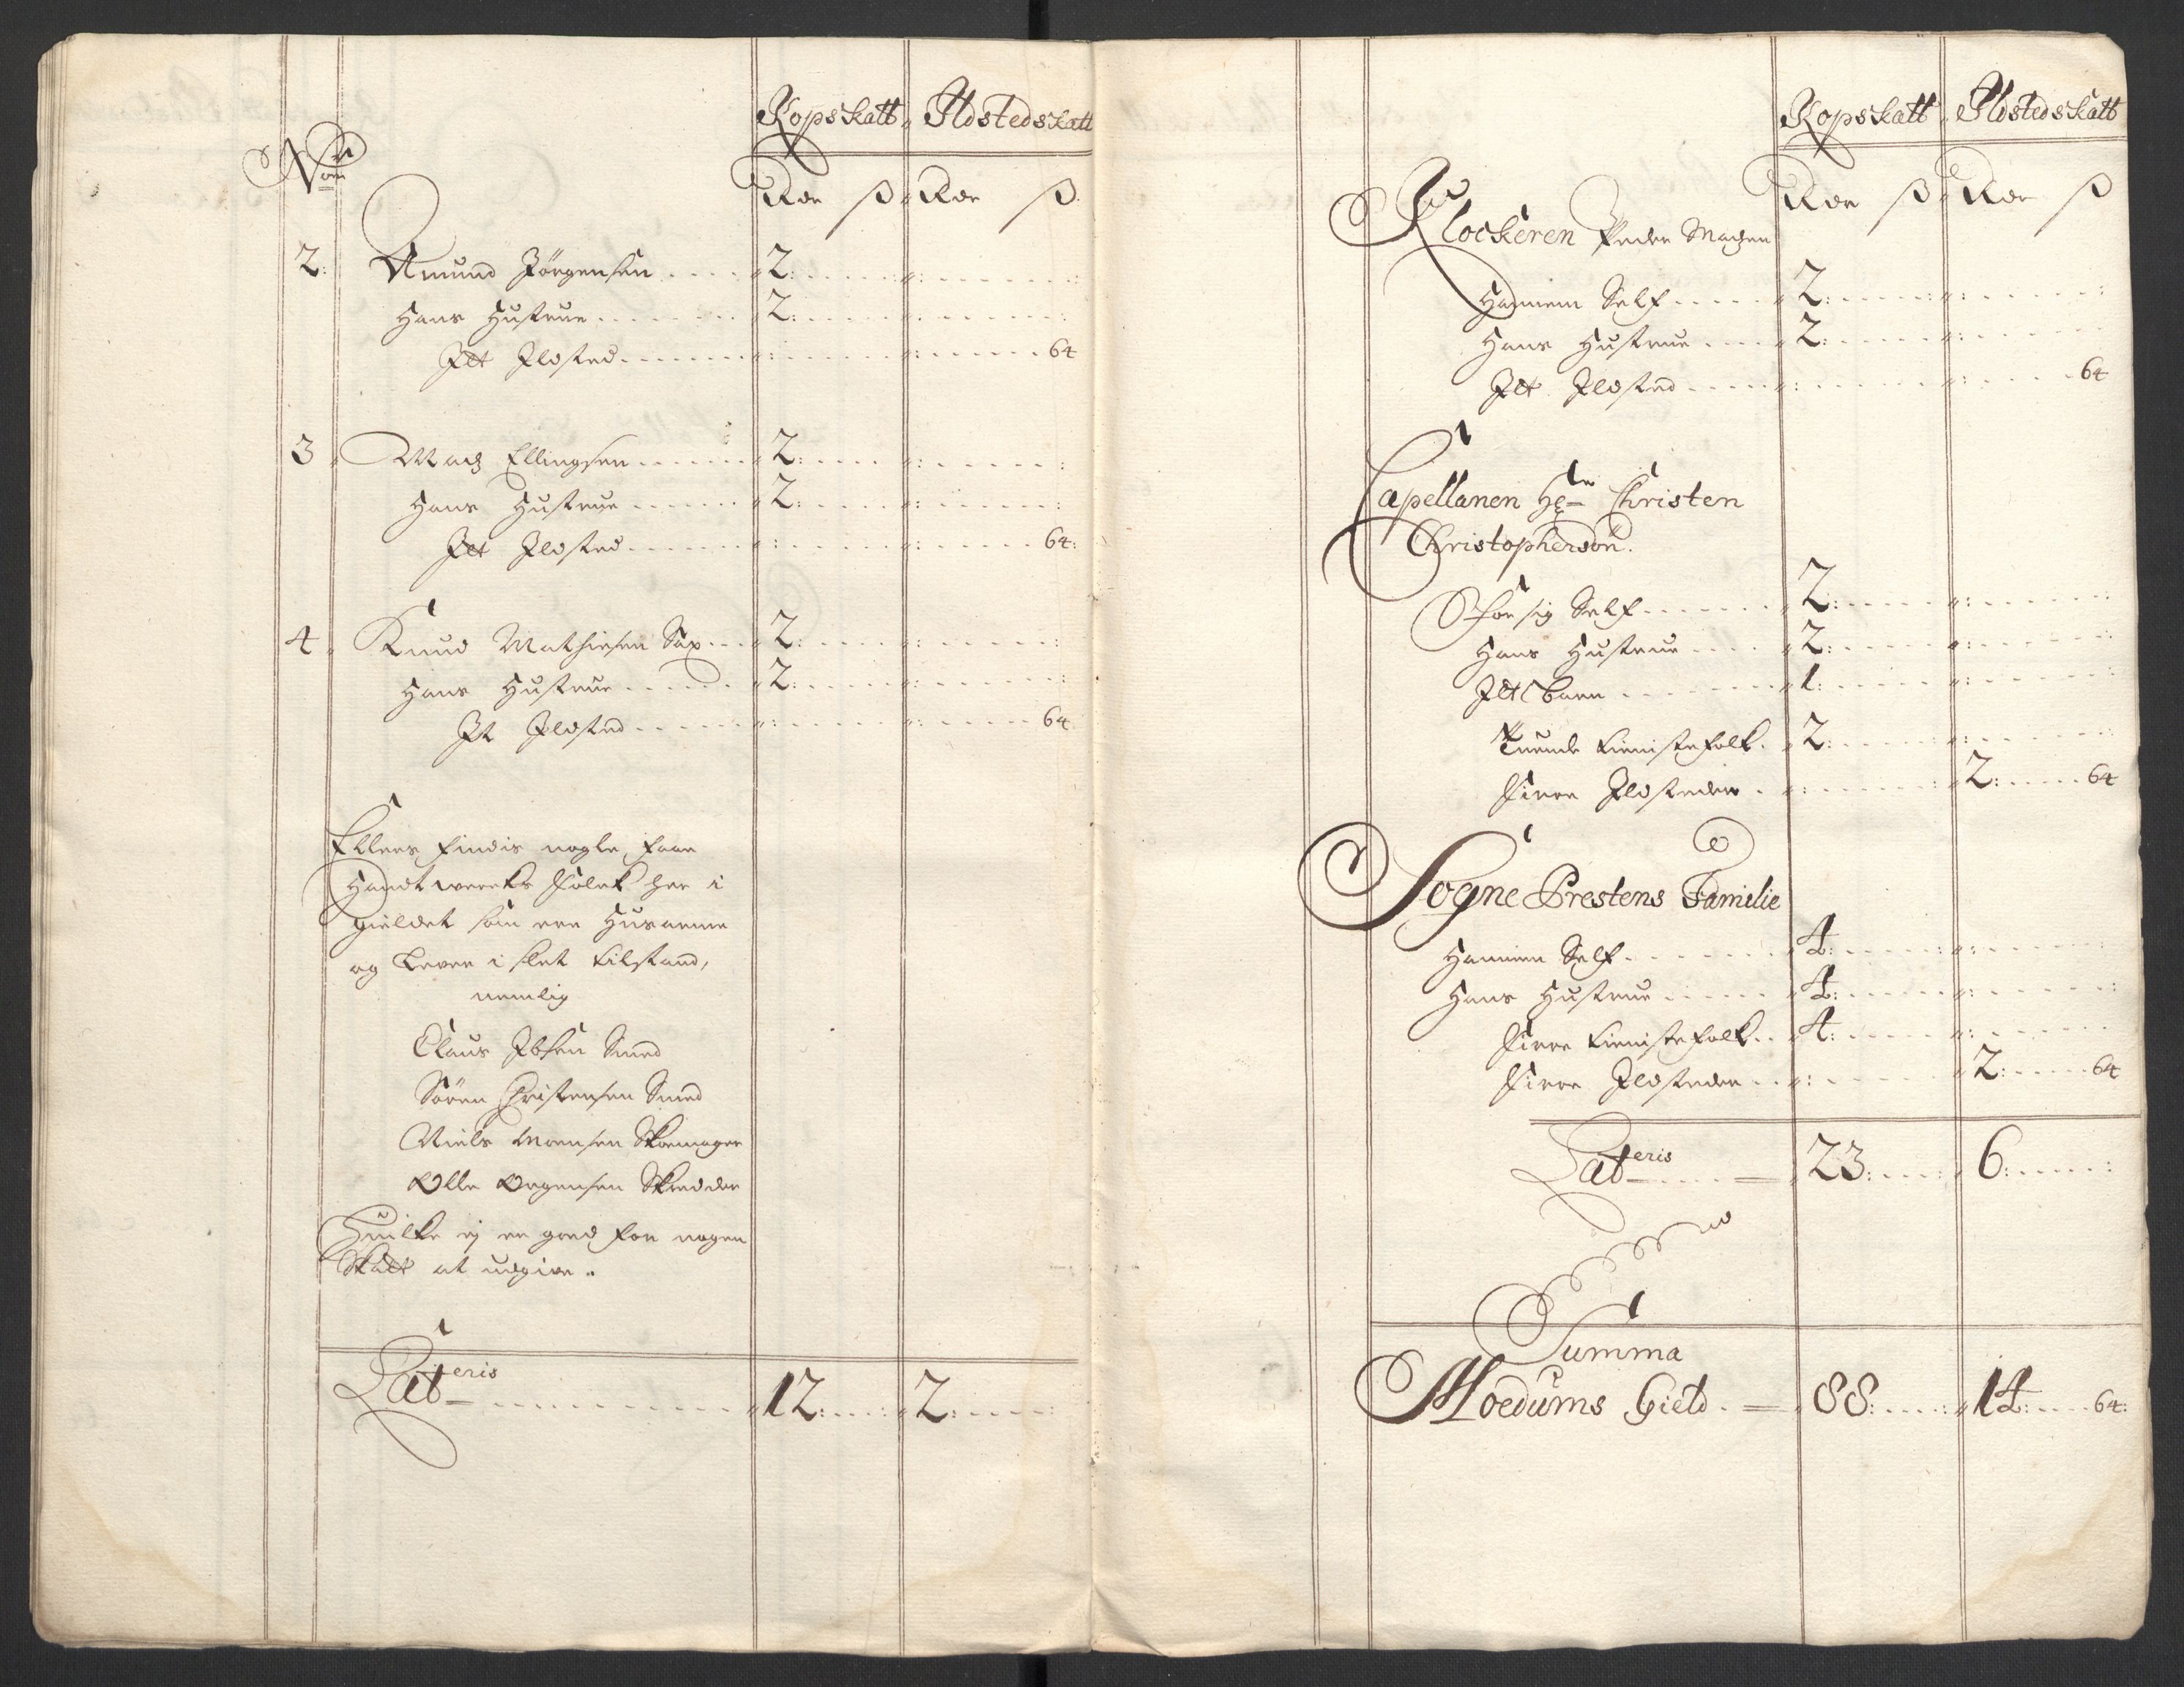 Kopskatt Ildstedskatt
No
Rdr ß Rdr ß
2: Amund Jörgensen 2:
Hans Hustrue 2:
Itt Ildsted 64
3 Mads Ellingsen 2:
Hans Hustrue 2:
Itt Ildsted 64:
4 Knud Mathiesen Sax 2:
Hans Hustrue 2:
It Ildsted 64
Ellers findis nogle faae
Handtwerks folck her i
gieldet som ere Husarme
og lever i slet tilstand,
nemlig
Claus Ibsen Smed
Sören Christensen Smed
Niels Monsen Skomager
Olle Skredder
Huilke ej er goed for nogen
Skatt at udgive.
Lateris 12: 2:
Kopskatt Ildstedskatt
Rdr ß Rdr ß
Klockeren Peder Madsen
Hannem Self 2:
Hans Hustrue 2:
Itt Ildsted 64
Capellanen Hr Christen
Christopherson.
For sig Self 2:
Hans Hustrue 2:
Itt Barn 1:
Tuende tienistefolk 2:
Fiere Ildsteder 2: 64
Sogne Prestens Familie
Hannem Self 4:
Hans Hustrue 4:
Fiere tienistefolk 4:
Fiere Ildsteder 2: 64
Lateris 23: 6:
Summa
Moedums Gield 88: 14: 64: